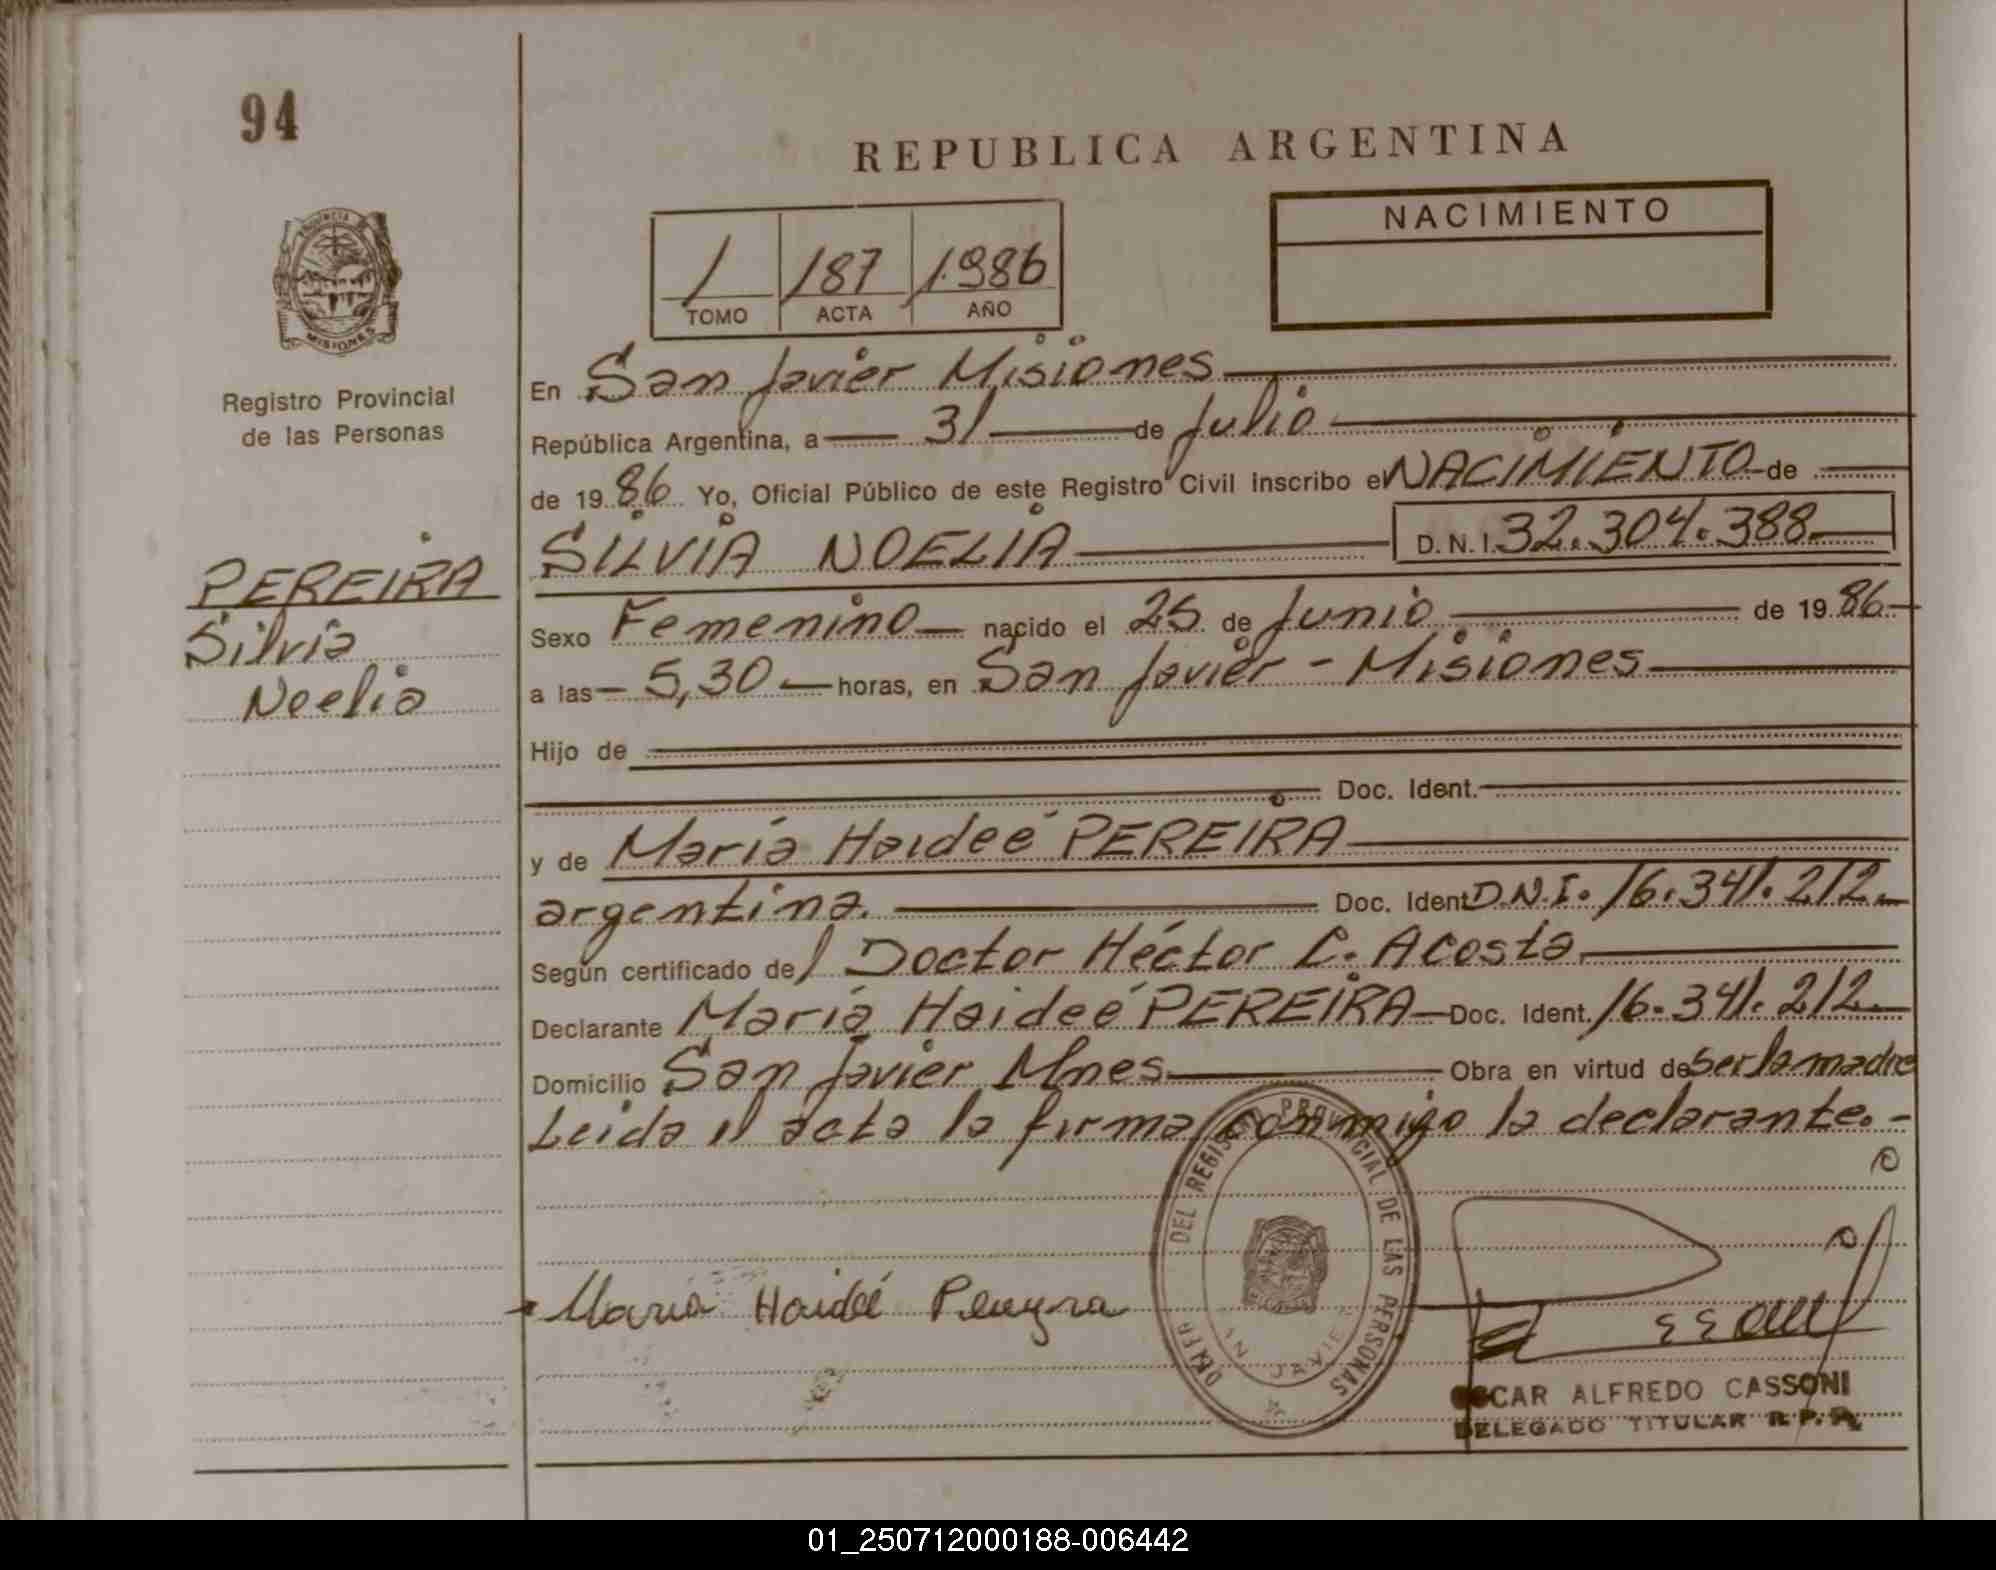 94
REPUBLICA ARGENTINA
PROVINCIA DE
MISIONES
Registro Provincial
de las Personas
1 187 1986
TOMO ACTA AÑO
NACIMIENTO
En San Javier Misiones
República Argentina, a 31 de Julio
de 1986 Yo, Oficial Público de este Registro Civil inscribo el NACIMIENTO de
SILVIA NOELIA D.N.I. 32.304.388
PEREIRA
Silvia
Noelia
Sexo Femenino nacido el 25 de Junio de 1986
a las 5,30 horas, en San Javier - Misiones
Hijo de
Doc. Ident.
y de María Haideé PEREIRA
argentina. Doc. Ident D.N.I. 16.341.212
Según certificado del Doctor Héctor C. Acosta
Declarante María Haideé PEREIRA Doc. Ident. 16.341.212
Domicilio San Javier Mnes Obra en virtud de ser la madre
Leida el acta la firma conmigo la declarante.-
DEL REGISTRO PROVINCIAL DE LAS PERSONAS
SAN JAVIER
María Haideé Pereyra
OSCAR ALFREDO CASSONI
DELEGADO TITULAR R.P.P.
01_250712000188-006442